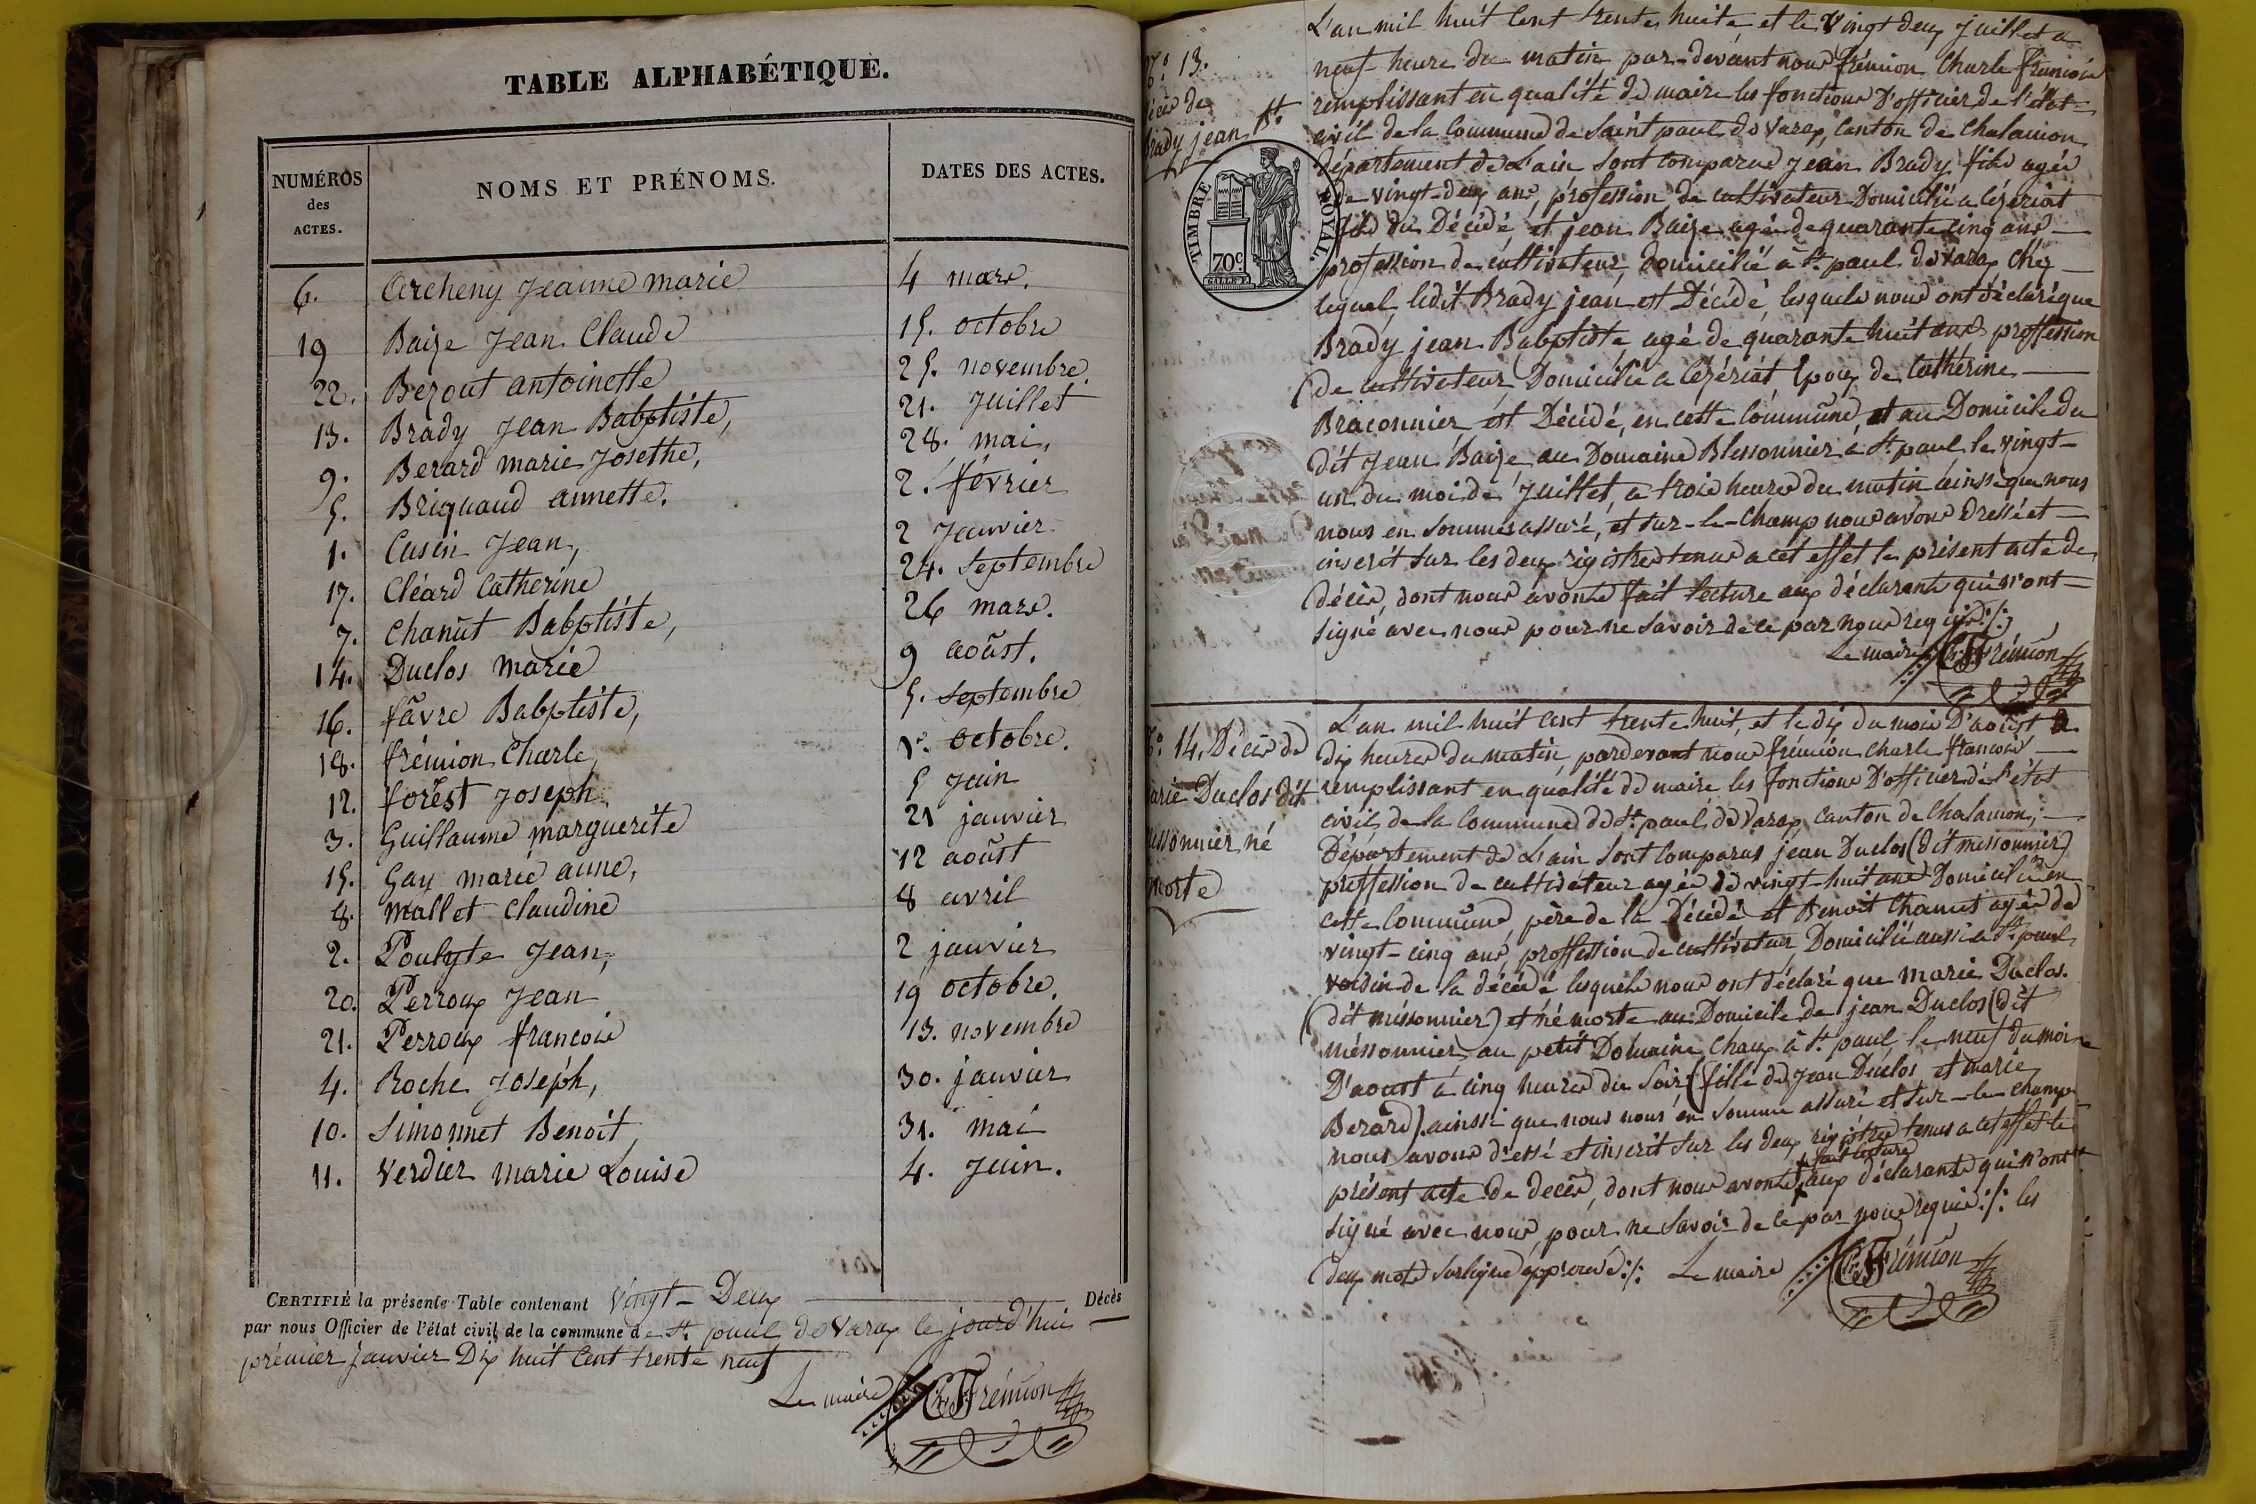 TABLE ALPHABÉTIQUE.
NUMÉROS des ACTES. NOMS ET PRÉNOMS. DATES DES ACTES.
6. Archeny Jeanne marie 4 mars.
19 Baize Jean Claude 15. octobre
22. Bezout antoinette 25. novembre
13. Brady Jean Babptiste, 21. Juillet
9. Berard marie Josethe, 28. mai,
5. Briquaud annette. 2. février
1. Cusin Jean, 2 Janvier
17. Cléard Catherine 24. Septembre
7. Chanut Babptiste, 26 mars.
14. Duclos marie 9 août.
16. favre Babptiste, 5. Septembre
18. frémion Charle, 1er octobre.
12. forest Joseph 5 Juin
3. Guillaume marguerite 21 janvier
15. Gay marie anne, 12 août
8. mallet Claudine 8 avril
2. Poulyte Jean, 2 janvier
20. Perroux Jean 19 octobre.
21. Perroux francois 13. novembre
4. Roche Joseph, 30. janvier
10. Simonnet Benoit, 31. mai
11. Verdier marie Louise 4. Juin.
CERTIFIÉ la présente Table contenant Vingt-Deux Décès
par nous Officier de l'état civil de la commune de St. paul de Varax le jourd'hui
prémier janvier Dix huit Cent trente neuf
Le maire Ch. Frémion
No. 13.
décès de
Brady jean Bte
TIMBRE ROYAL.
70c
L'an mil huit Cent trente huite et le vingt deux Juillet a
neuf heure du matin par-devant nous frémion Charle francois
remplissant en qualité de maire les fonctions D'officier de l'état
civil de la Commune de Saint paul de varax, Canton de Chalamon
Département de L'ain Sont Comparus Jean Brady fils agée
de vingt-deux ans, profession de cultivateur Domicilié a Cézériat
fils du Décédé et jean Baize agée de quarante cinq ans
profession de cultivateur, domicilié à St. paul de varax Chez
lequel ledit Brady jean est Décédé lesquels nous ont déclaré que
Brady jean Babptiste agé de quarante huit ans proffession
de cultivateur Domicilié a Cézériat Epoux de Cathérine
Braconnier est Décédé, en cette Commune, et au Domicile du
dit Jean Baize au Domaine Blessonnier à St. paul le vingt-
un du moi de Juillet, a trois heures du matin ainssi que nous
nous en sommes assuré, et sur-le-champ nous avons dressé et
inscrit sur les deux rigistres tenus a cet effet le présent acte de
décès, dont nous avons fait lecture aux déclarants qui n'ont
signé avec nous pour ne savoir de ce par nous requis ./.
Le maire Ch. Frémion
No. 14. Décès de
marie Duclos dit
missonnier né
morte
L'an mil huit Cent trente huit, et le dix du mois D'aoust a
dix heures du matin pardevant nous frémion charle francois
remplissant en qualité de maire les fonctions D'officier de l'état
civil de la Commune de St. paul de Varax, Canton de Chalamon,
Département de L'ain Sont Comparus jean Duclos (dit missonnier)
proffession de cultivateur agée de vingt-huit ans Domicilié en
cette Commune, père de la Décédé et Benoit Chanut agée de
vingt-cinq ans, proffession de cultivateur, Domicilié aussi a St. paul
voisin de la décédé lesquels nous ont déclaré que marie Duclos
(dit missonnier) et né morte au Domicile de jean Duclos (dit
missonnier) au petit Domaine Chaux à St. paul le neuf du mois
D'aoust à cinq heures du soir (fille de Jean Duclos et marie
Berard). ainssi que nous nous en somme assuré et sur-le-champ
nous avons dressé et inscrit sur les deux rigistres tenus a cet effet le
présent acte de decès, dont nous avons fait lecture aux déclarants qui n'ont
signé avec nous pour ne savoir de ce par nous requis ./. les
deux mots surligne épprouvé ./. Le maire Ch. Frémion